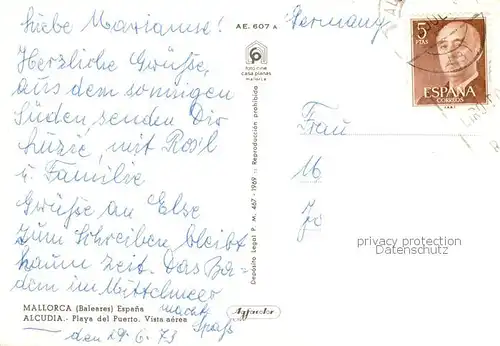 Liebe Marianne!
Herzliche Grüsse,
aus dem sonnigen
Süden senden Dir
mit Rosl
u. Familie
Grüsse an Else
Zum Schreiben bleibt
kaum Zeit. Das Ba-
dem im Mittelmeer
macht
Spaß
den 29.6.73
MALLORCA (Baleares) España
ALCUDIA.- Playa del Puerto. Vista aérea
AE. 607 A
foto cine
casa planas
mallorca
Depósito Legal P. M. 467 - 1969 .: Reproducción prohibida
Agfacolor
Germany
5
PTAS
ESPAÑA
CORREOS
Frau
M
privacy protection
Datenschutz